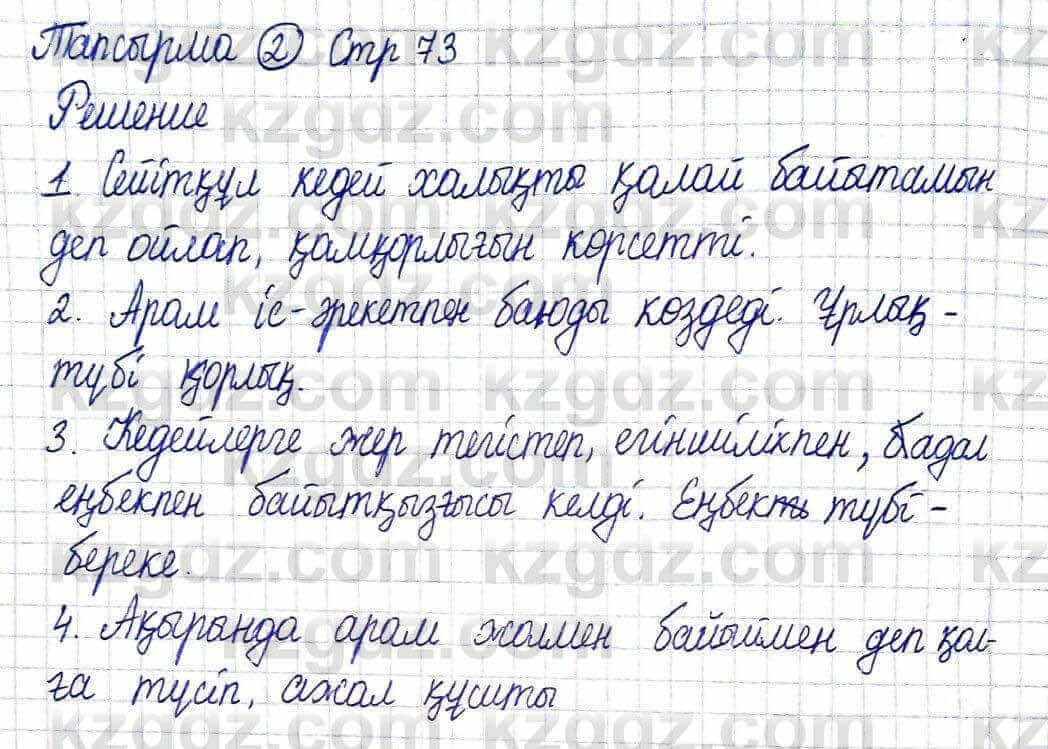 Тапсырма 2 Стр 73
Решение
1. Сейітқұл кедей халықты қалай байытамын
деп ойлап, қамқорлығын көрсетті.
2. Арам іс-әрекетпен баюды көздеді. Ұрлық -
түбі қорлық.
3. Кедейлерге жер тегістеп, егіншілікпен, адал
еңбекпен байытқызғысы келді. Еңбек түбі -
береке.
4. Ақырында арам жолмен байыймен деп қол-
ға түсіп, ажал құшты
kzgdz.com